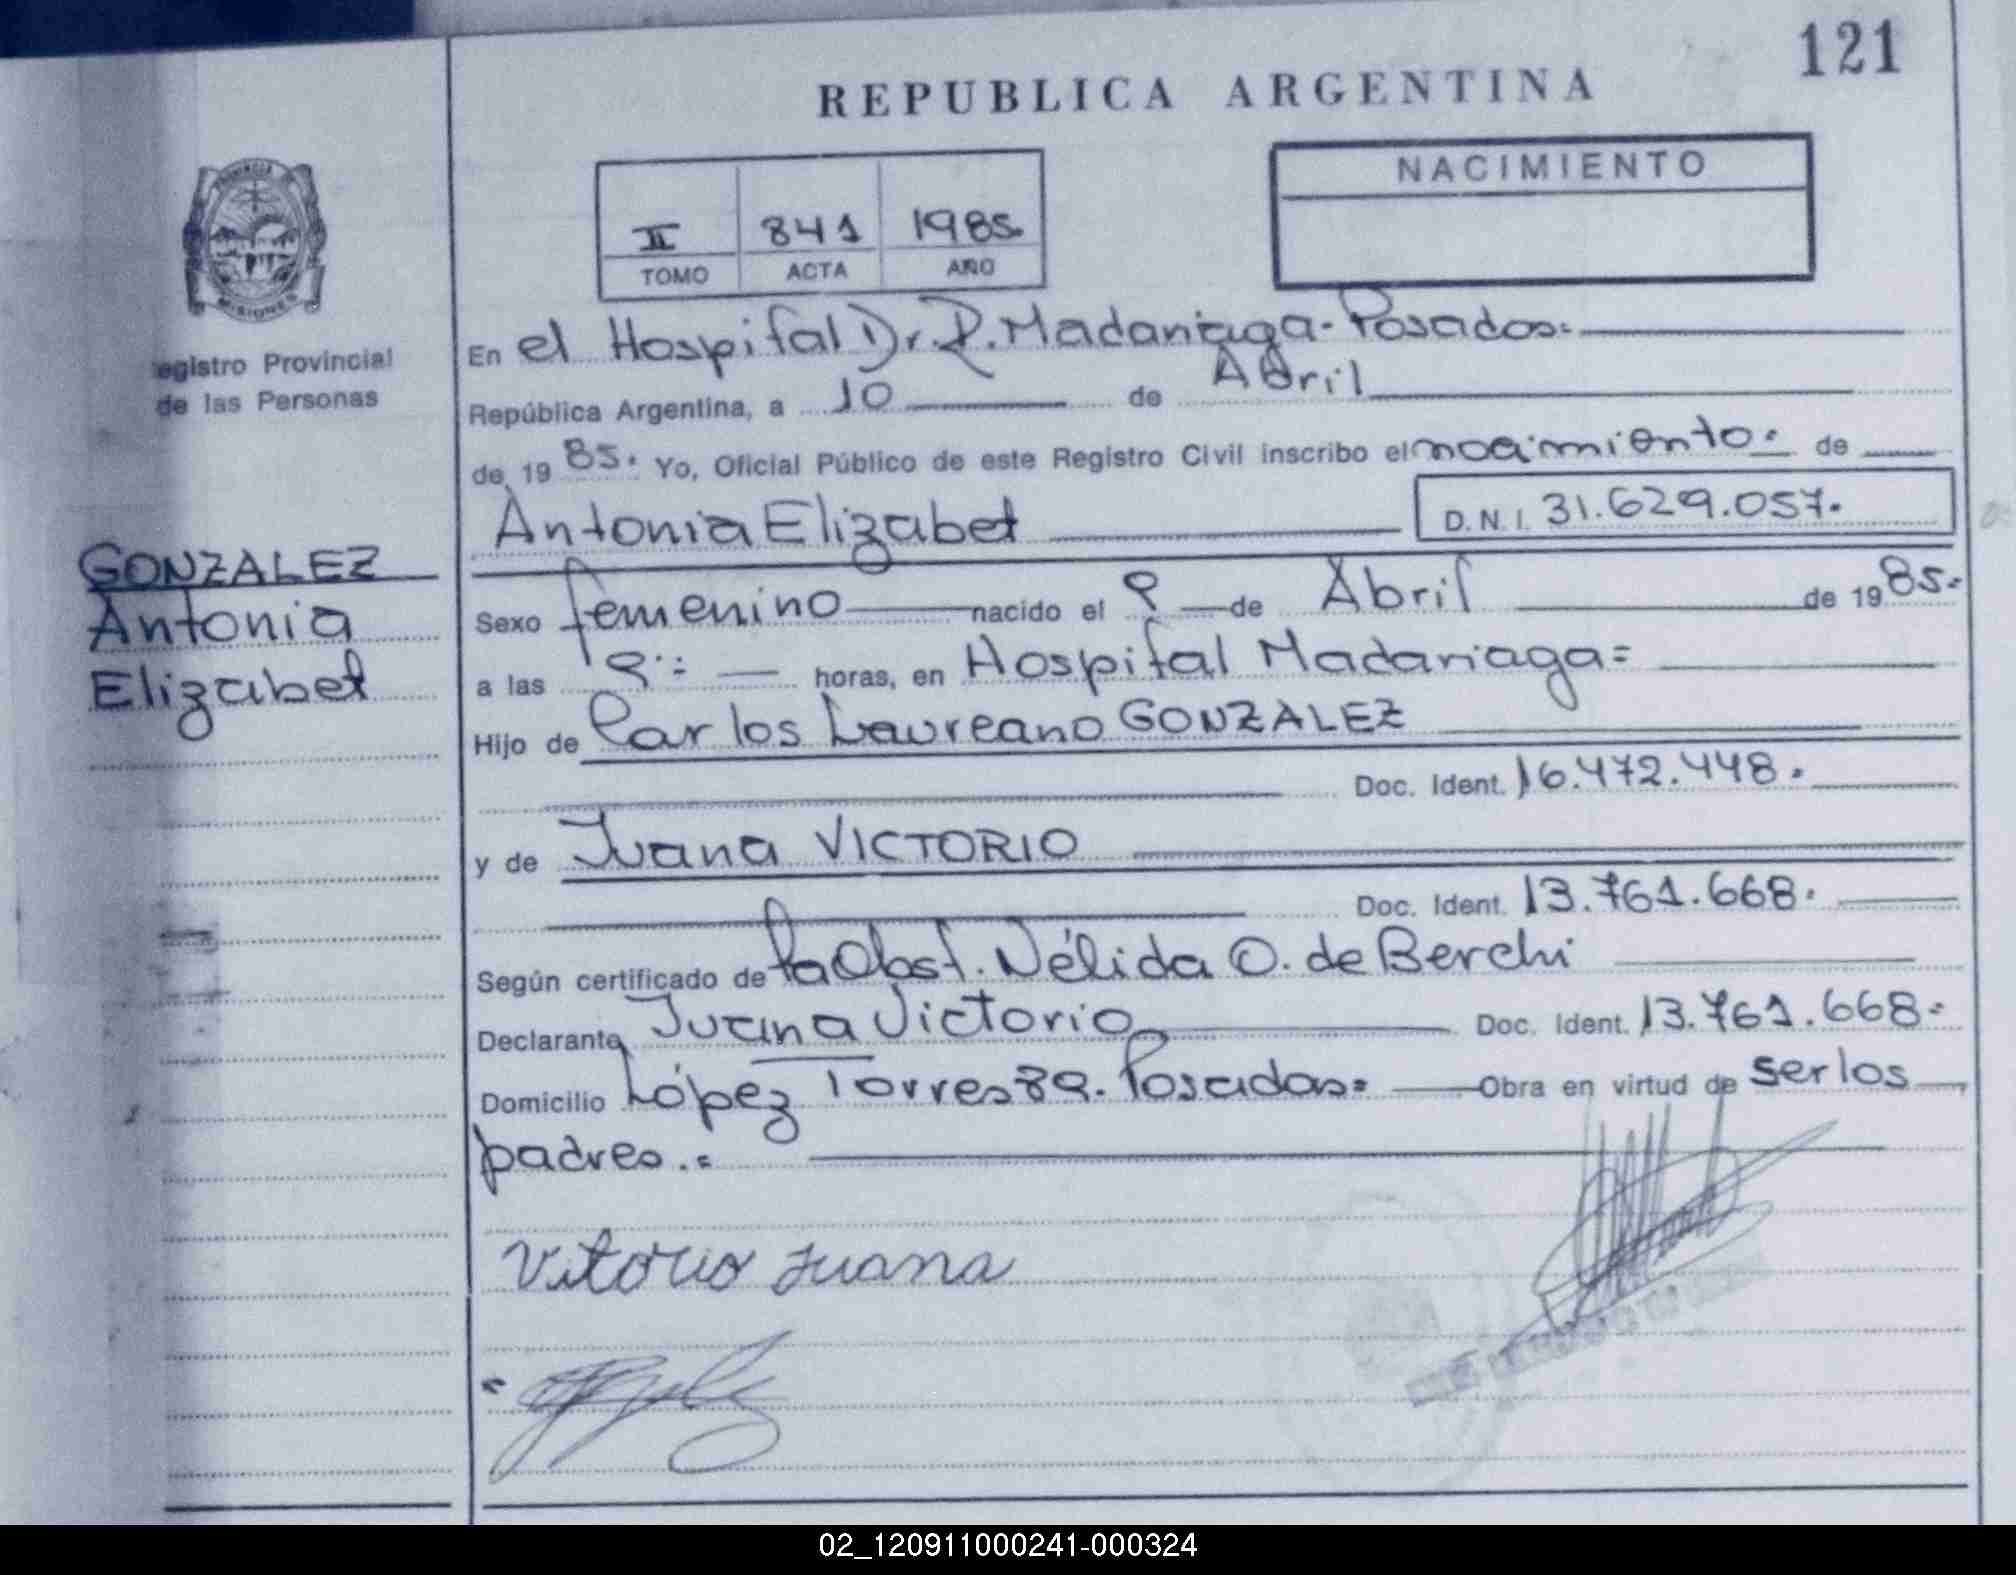 121
REPUBLICA ARGENTINA
NACIMIENTO
II 841 1985.
TOMO ACTA AÑO
PROVINCIA
MISIONES
egistro Provincial
de las Personas
GONZALEZ
Antonia
Elizabet
En el Hospital Dr. R. Madariaga - Posadas=
República Argentina, a 10 de Abril
de 19 85. Yo, Oficial Público de este Registro Civil inscribo el nacimiento= de
Antonia Elizabet D.N.I. 31.629.057.
Sexo femenino nacido el 9 de Abril de 19 85.
a las 9:= horas, en Hospital Madariaga=
Hijo de Carlos Laureano GONZALEZ
Doc. Ident. 16.472.448.
y de Juana VICTORIO
Doc. Ident. 13.761.668.
Según certificado de la Obst. Nélida O. de Berchi
Declarante Juana Victorio Doc. Ident. 13.761.668.
Domicilio López Torres 89. Posadas= Obra en virtud de ser los
padres.=
Vitorio Juana
02_120911000241-000324